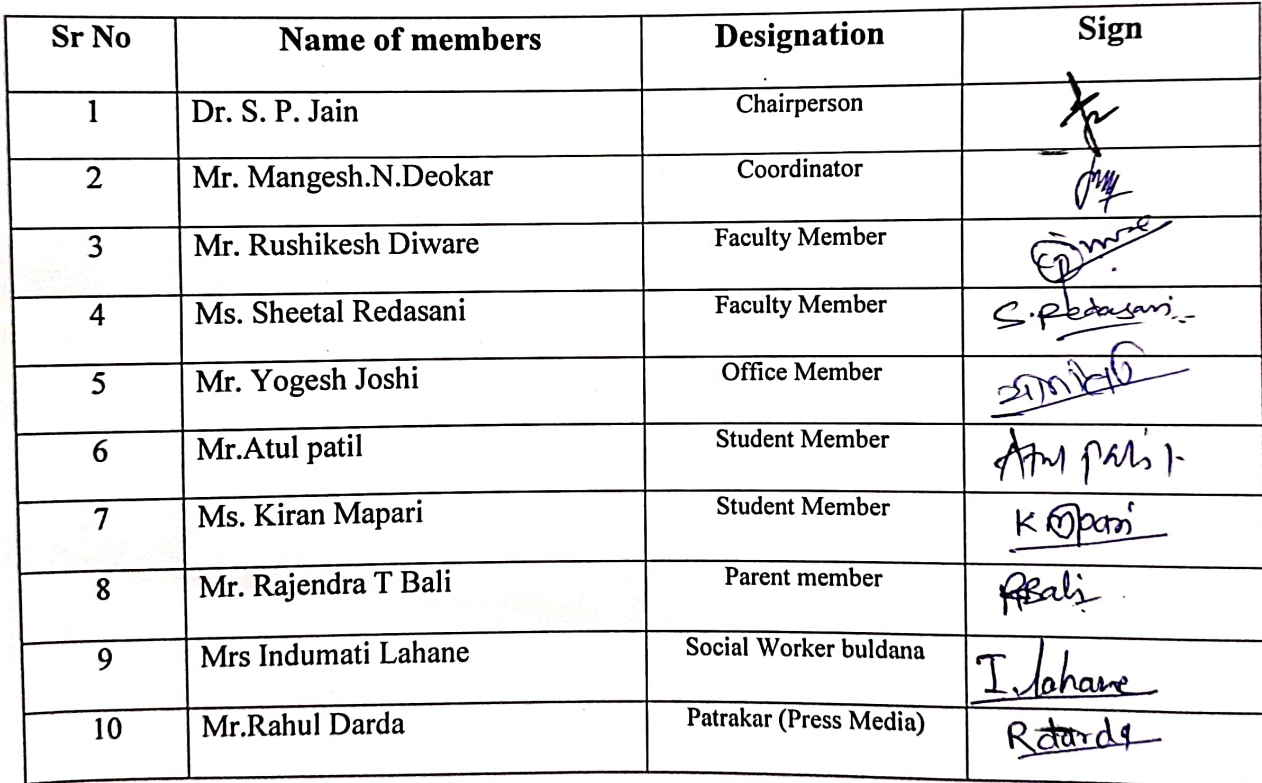 Sr No Name of members Designation Sign
1 Dr. S. P. Jain Chairperson
2 Mr. Mangesh.N.Deokar Coordinator
3 Mr. Rushikesh Diware Faculty Member
4 Ms. Sheetal Redasani Faculty Member S.Redasani
5 Mr. Yogesh Joshi Office Member
6 Mr.Atul patil Student Member Atul patil
7 Ms. Kiran Mapari Student Member K Mapari
8 Mr. Rajendra T Bali Parent member RBali
9 Mrs Indumati Lahane Social Worker buldana I.lahane
10 Mr.Rahul Darda Patrakar (Press Media) Rdarda